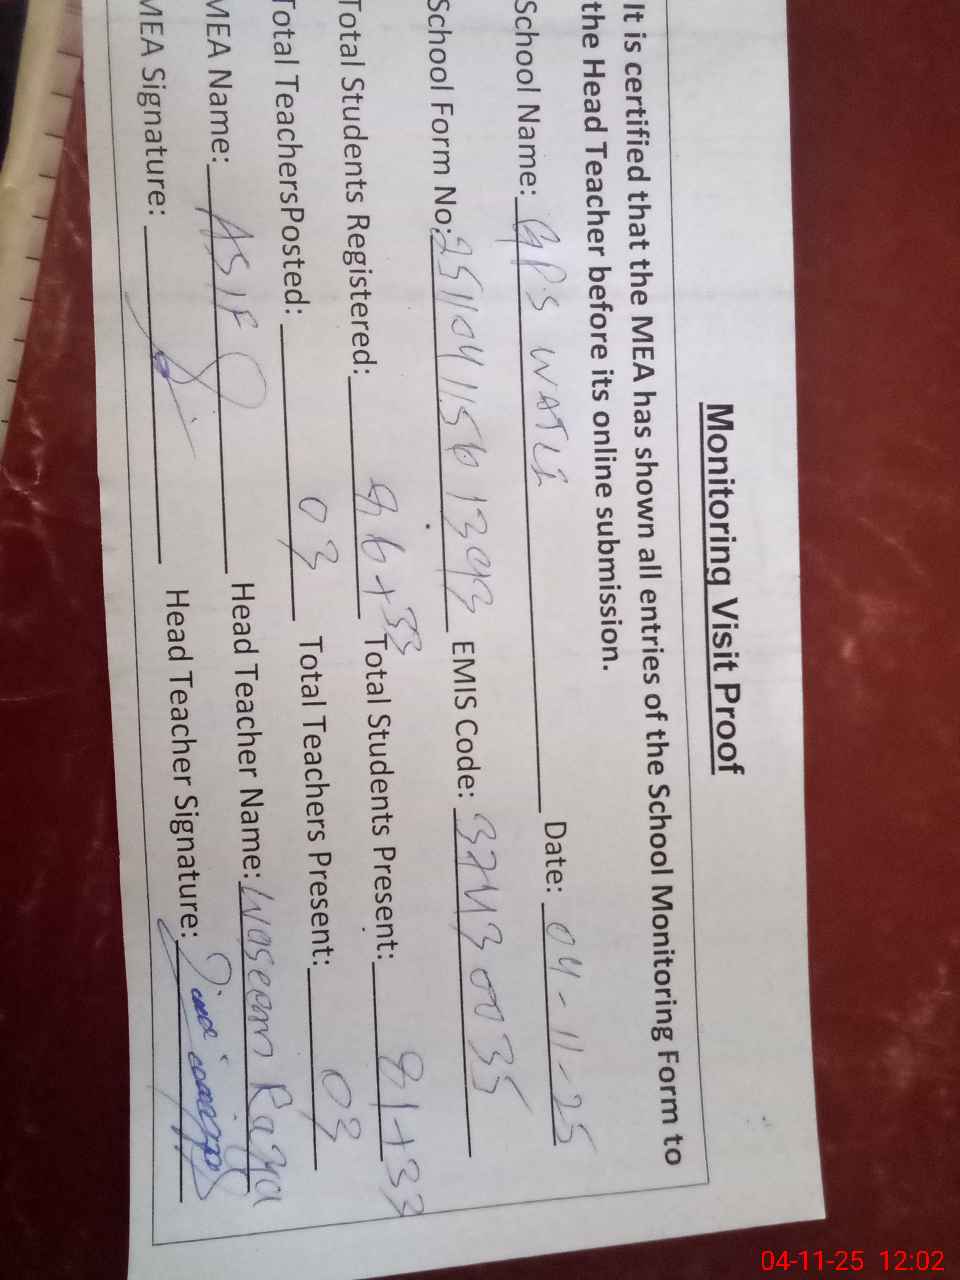 Monitoring Visit Proof
It is certified that the MEA has shown all entries of the School Monitoring Form to
the Head Teacher before its online submission.
School Name: GPS WATLI Date: 04-11-25
School Form No: 25110411561393 EMIS Code: 37430035
Total Students Registered: 86+33 Total Students Present: 81+33
Total TeachersPosted: 03 Total Teachers Present: 03
MEA Name: ASIF Head Teacher Name: Waseem Raza
MEA Signature: Head Teacher Signature:
04-11-25 12:02